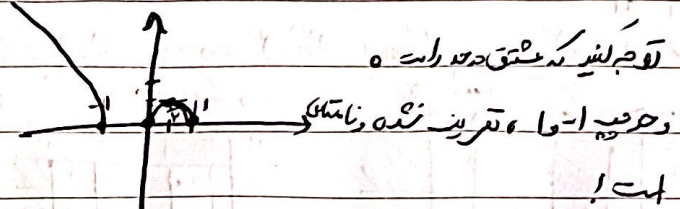 توجه کنید که مشتق در حد راست ٠
و حد چپ ١- و ١ ، تعریف نشده و نامتناهی
است !
-١
١
١/٢